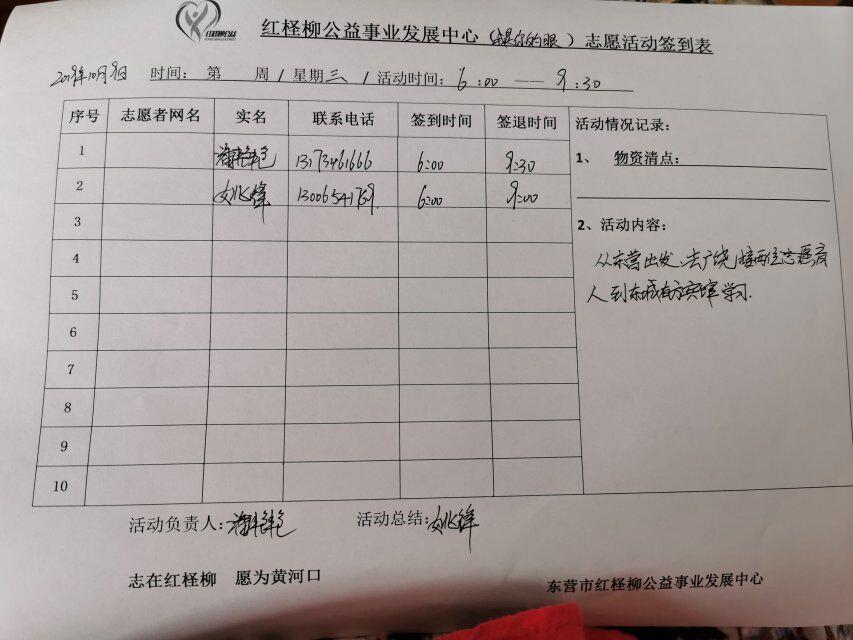 红柽柳公益事业发展中心（我是你的眼）志愿活动签到表
2019年10月9日 时间：第 周/星期三/活动时间：6:00——9:30
序号 志愿者网名 实名 联系电话 签到时间 签退时间
1 艳艳 13173461666 6:00 9:30
2 姚兆锋 13006541769. 6:00 9:00
3
4
5
6
7
8
9
10
活动情况记录：
1、 物资清点：
2、活动内容：
从东营出发，去广饶接两位志愿盲
人到东城有方宾馆学习.
活动负责人： 艳艳 活动总结：姚兆锋
志在红柽柳 愿为黄河口
东营市红柽柳公益事业发展中心